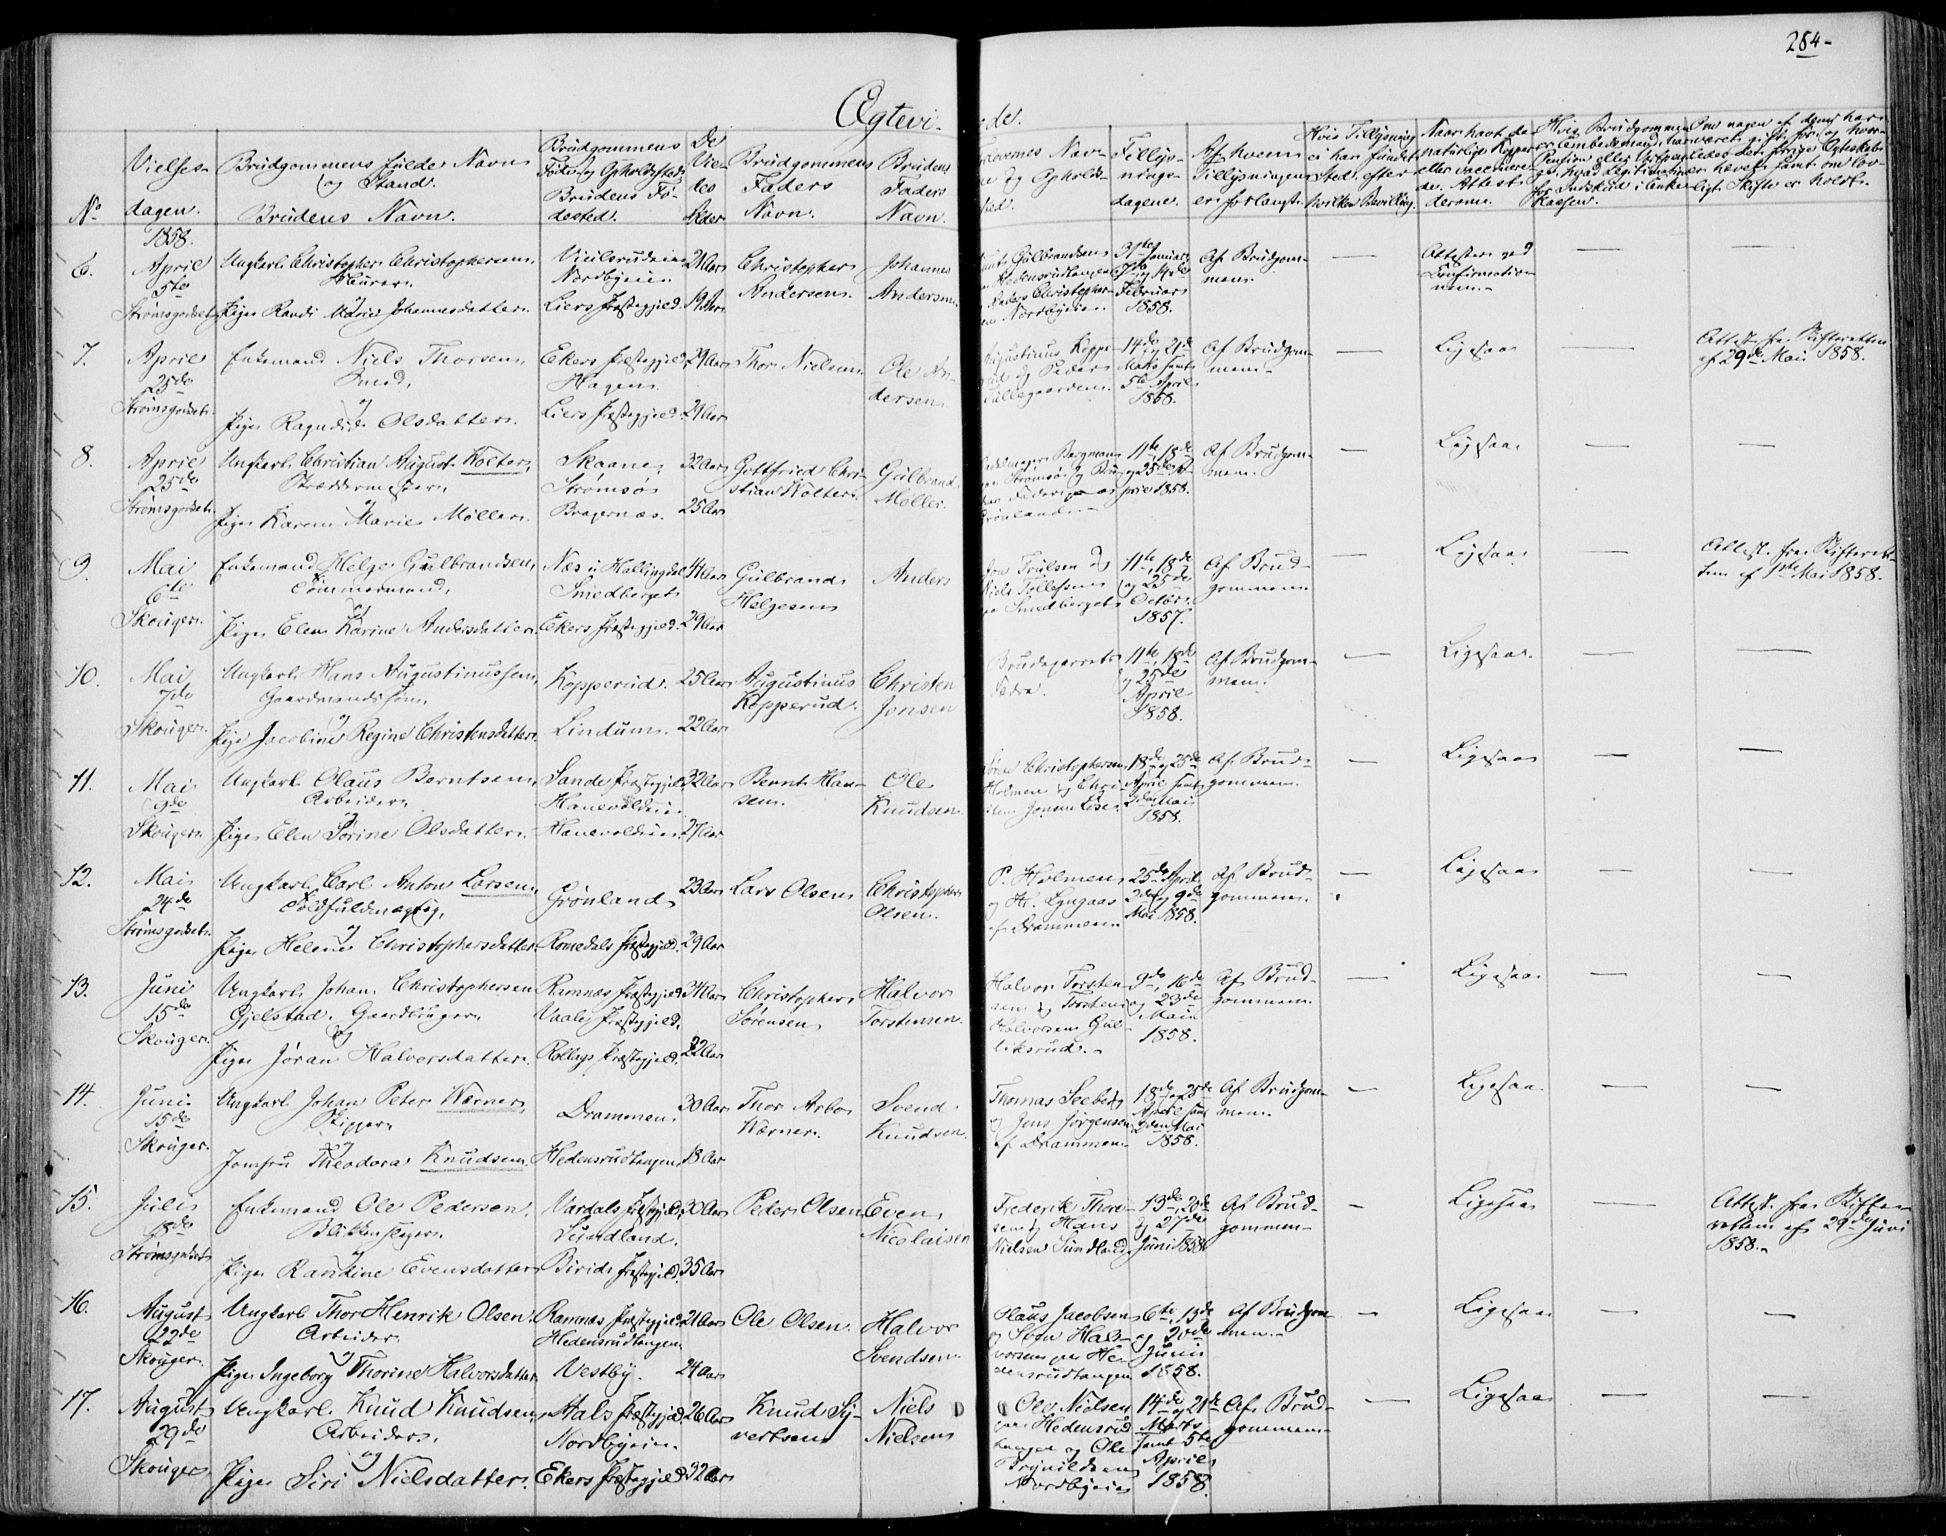 284-
Ægtevi-
de.
No
Vielses-
dagen.
Brudgommens fulde Navn
og Stand.
Brudens Navn.
Brudgommens
Føde- og Opholdssted
Brudens Fø-
dested.
De
Vie-
des
Alder
Brudgommens
Faders
Navn.
Brudens
Faders
Navn.
Forlovernes Nav-
ne og Opholds-
sted.
Tillys-
nings-
dagene.
Af hvem
Tillysningen
er forlangt.
Hvis Tillysning
ei har fundet
Sted, efter
hvilken Bevilling.
Naar havt de
naturlige Kopper
eller vaccinere-
de. Attest
derom.
1858.
6.
April
5te
Strømsgodset
Ungkarl Christopher Christophersen,
Murer.
Pige Randi Marie Johannesdatter.
Nordbyeie.
Liers Præstegjeld.
21 Aar
19 Aar
Christopher
Andersen.
Johannes
Andersen.
31te Januar
7de og 14de
Februar
1858.
Af Brudgom-
men.
—
Attester ved
Confirmatio-
nen.
—
—
7.
April
25de
Strømsgodset.
Enkemand Niels Thorsen,
Smed,
og
Pige Ragnhild Olsdatter.
Ekers Præstegjeld,
Hagen.
Liers Præstegjeld.
29 Aar
21 Aar
Thor Nielsen.
Ole An-
dersen
Augustinus Koppe-
rud og Peder
Lillegaarden.
14de og 21de
Marts samt
5te April
1858.
Af Brudgom-
men.
—
Ligesaa
—
Attest fra Skifteretten
af 29de Mai 1858.
8.
April
25de
Strømsgodset.
Ungkarl Christian August Wolter,
Skræddermester,
og
Pige Karen Marie Møller.
Skaane,
Strømsø
Bragernæs.
32 Aar
25 Aar
Gottfried Chri-
stian Wolter.
Gulbrand
Møller.
11te, 18de
og 25de A-
pril 1858.
Af Brudgom-
men.
—
Ligesaa
—
—
9.
Mai
6te
Skouger.
Enkemand Helge Gulbrandsen,
Tømmermand,
og
Pige Elen Karine Andersdatter.
Næs i Hallingdal
Smedberget
Ekers Præstegjeld.
41 Aar
29 Aar
Gulbrand
Helgesen
Anders
Niels Tollefsen
paa Smedberget
11te, 18de
og 25de
Octbr.
1857.
Af Brud-
gommen.
—
Ligesaa
—
Attest fra Skifteret-
ten af 1ste Mai 1858.
10.
Mai
7de
Skouger.
Ungkarl Hans Augustinussen,
Gaardmandssøn,
og
Pige Jacobine Regine Christensdatter.
Kopperud.
Lindum.
25 Aar
22 Aar
Augustinus
Kopperud.
Christen
Jensen
Brudeparrets
Fædre.
11te, 18de
og 25de
April
1858.
Af Brudgom-
men.
—
Ligesaa.
—
—
11.
Mai
9de
Skouger.
Ungkarl Olaus Berntsen,
Arbeider,
og
Pige Elen Sørine Olsdatter.
Sande Præstegjeld,
Hanevoldeie.
Hanevoldeie.
32 Aar
27 Aar
Bernt Han-
sen.
Ole
Knudsen
Søren Christophersen
Holmen og Chri-
sten Jensen
18de og 25de
April samt
2den Mai
1858.
Af Brud-
gommen.
—
Ligesaa
—
—
12.
Mai
24de
Strømsgodset.
Ungkarl Carl Anton Larsen,
Toldfuldmægtig,
og
Pige Helene Christophersdatter.
Grønland
Romedals Præstegjeld.
23 Aar
29 Aar
Lars Olsen
Christopher
Olsen.
P. Holmen
og H. Lyngaas
af Drammen
25de April
2den og 9de
Mai 1858.
Af Brud-
gommen.
Ligesaa
—
—
13.
Juni
15de
Skouger.
Ungkarl Johan Christophersen
Gjelstad, Gaardbruger.
og
Pige Jøran Halvorsdatter.
Ramnæs Præstegjeld
Vaale Præstegjeld,
Rollags Præstegjeld.
34 Aar
22 Aar
Christopher
Sørensen
Halvor
Torstensen.
Halvor Torsten-
sen og Torsten
Halvorsen Gul-
liksrud.
9de, 16de
og 23de
Mai
1858.
Af Brud-
gommen.
—
Ligesaa
—
—
14.
Juni
15de
Skouger.
Ungkarl Johan Peter Wærner,
Skipper,
og
Jomfru Theodora Knudsen.
Drammen,
Hedensrudtangen.
30 Aar
18 Aar
Thor Arbo
Wærner.
Svend
Knudsen.
Thomas Seeberg
og Jens Jørgensen
af Drammen
18de og 25de
April samt
2den Mai
1858.
Af Brudgom-
men.
—
Ligesaa
—
—
15.
Juli
18de
Strømsgodset
Enkemand Ole Pedersen,
Blikkenslager.
og
Pige Randine Evensdatter
Vardals Præstegjeld,
Sundland.
Birids Præstegjeld.
30 Aar
35 Aar
Peder Olsen
Even
Nicolaisen
Frederik Thore-
sen og Hans
Nielsen Sundland.
13de, 20de
og 27de
Juni 1858.
Af Brud-
gommen
—
Ligesaa
—
Attest fra Skifte-
retten af 29de Juni
1858.
16.
August
22de
Skouger.
Ungkarl Thor Henrik Olsen,
Arbeider.
og
Pige Ingeborg Thorine Halvorsdatter.
Ramnæs Præstegjeld
Hedensrudtangen.
Vestby.
21 Aar
24 Aar
Ole Olsen.
Halvor
Svendsen.
Olaus Jacobsen
og Svend Hal-
vorsen paa He-
densrudtangen
6te, 13de
og 20de
Juni
1858.
Af Brudgom-
men.
—
Ligesaa
—
—
17.
August
29de
Skouger
Ungkarl Knud Knudsen,
Arbeider,
og
Pige Siri Nielsdatter.
Aals Præstegjeld
Nordbyeie.
Ekers Præstegjeld.
26 Aar
32 Aar
Knud Sy-
vertsen
Niels
Nielsen
Ole Nielsen
paa Hedensrud-
tangen og Ole
Brynildsen
Nordbyeie
14de og 21de
Marts
samt 5te
April
1858.
Af Brud-
gommen
—
Ligesaa
—
—